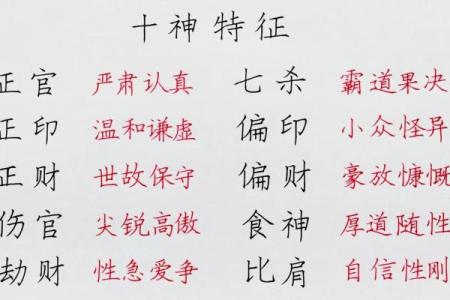 十神特征
正官 严肃认真 七杀 霸道果决
正印 温和谦虚 偏印 小众怪异
正财 世故保守 偏财 豪放慷慨
伤官 尖锐高傲 食神 厚道随性
劫财 性急爱争 比肩 自信性刚